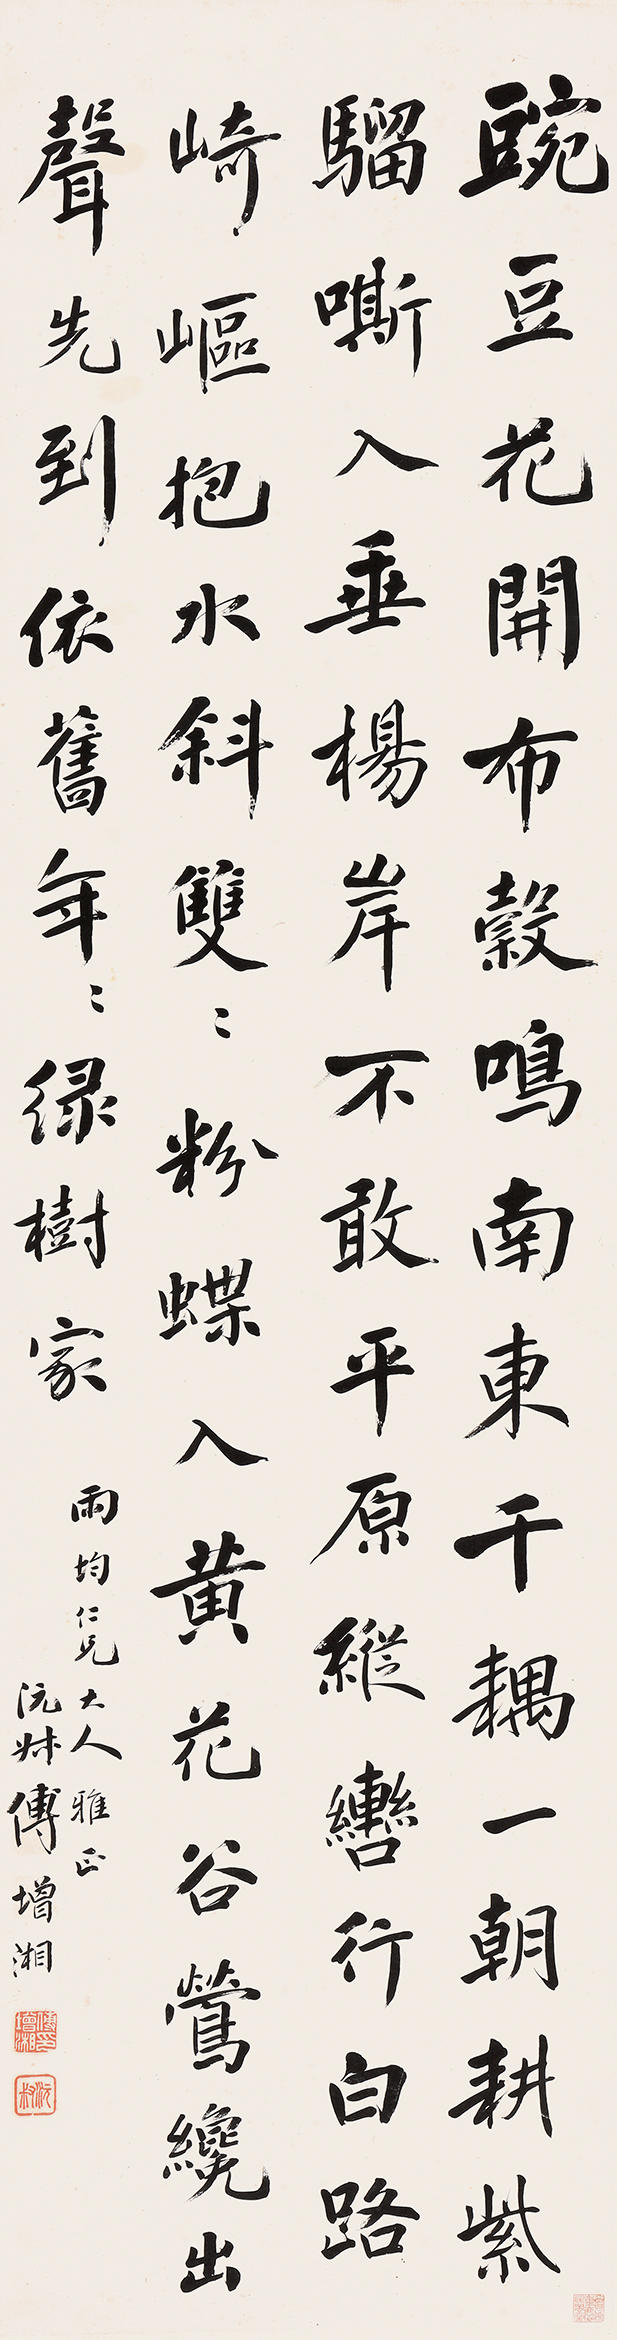 豌豆花開布穀鳴南東千耦一朝耕紫
騮嘶入垂楊岸不敢平原縱轡行白路
崎嶇抱水斜雙〻粉蝶入黄花谷鶯纔出
聲先到依舊年〻緑樹家
雨均仁兄大人雅正
沅叔傅增湘
傅增湘印
沅叔